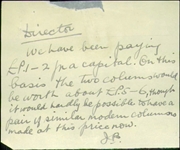 Director
We have been paying
£P.1-2 for a capital. On this
basis the two columns would
be worth about £P.5-6, though
it would hardly be possible to have a
pair of similar modern columns
made at this price now.